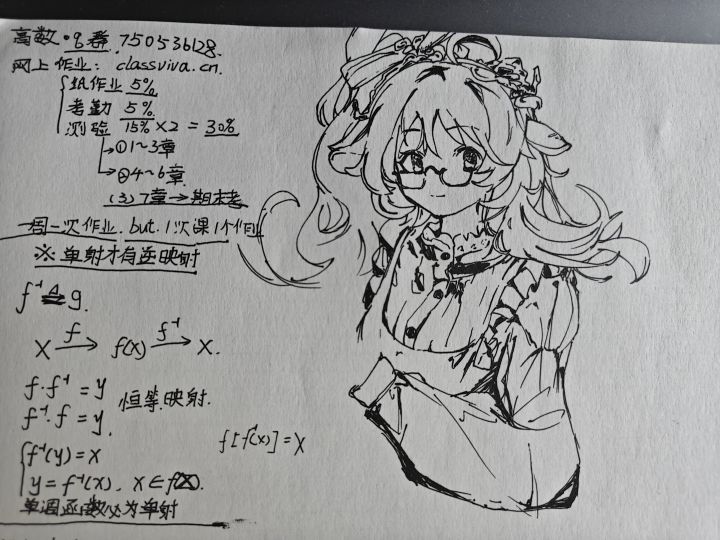 高数·q群 750536128.
网上作业: classviva.cn.
纸作业 5%
考勤 5%
测验 15%×2 = 30%
→①1~3章
→②4~6章
(3)7章→期末考
一周一次作业. but. 1次课1个作业
※ 单射才有逆映射
f⁻¹ ≜ g.
X —f→ f(x) —f⁻¹→ X.
f·f⁻¹ = y
恒等映射.
f⁻¹·f = y.
f[f⁻¹(x)] = X
f⁻¹(y) = x
y = f⁻¹(x), x∈f(X).
单调函数必为单射